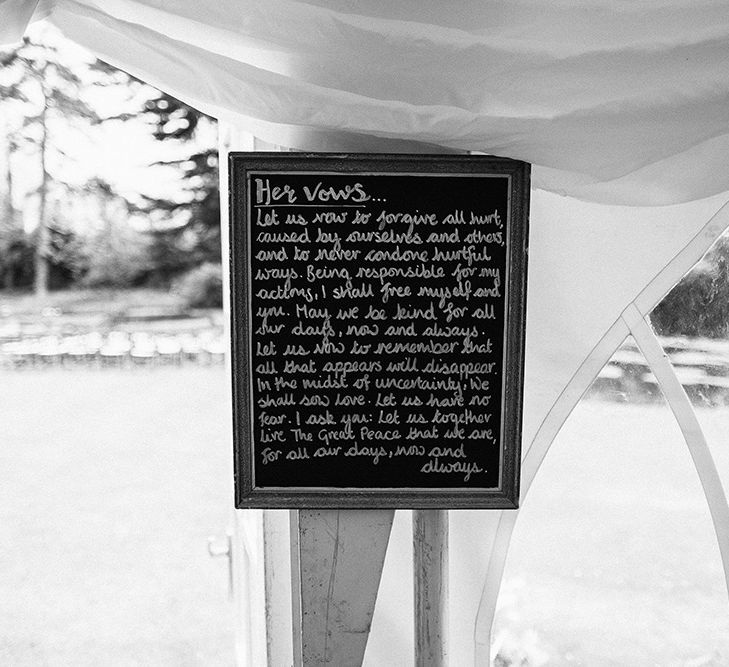 Her vows...
Let us vow to forgive all hurt,
caused by ourselves and others,
and to never condone hurtful
ways. Being responsible for my
actions, I shall free myself and
you. May we be kind for all
our days, now and always.
Let us vow to remember that
all that appears will disappear.
In the midst of uncertainty, We
shall sow love. Let us have no
fear. I ask you: Let us together
live The Great Peace that we are,
for all our days, now and
always.